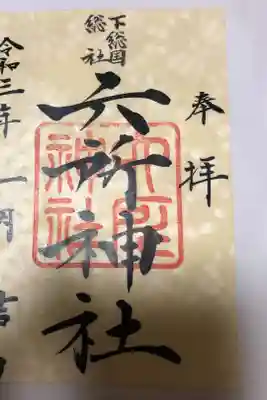 奉拝
下総国
総社
六所神社
六所
神社
令和三年一月吉